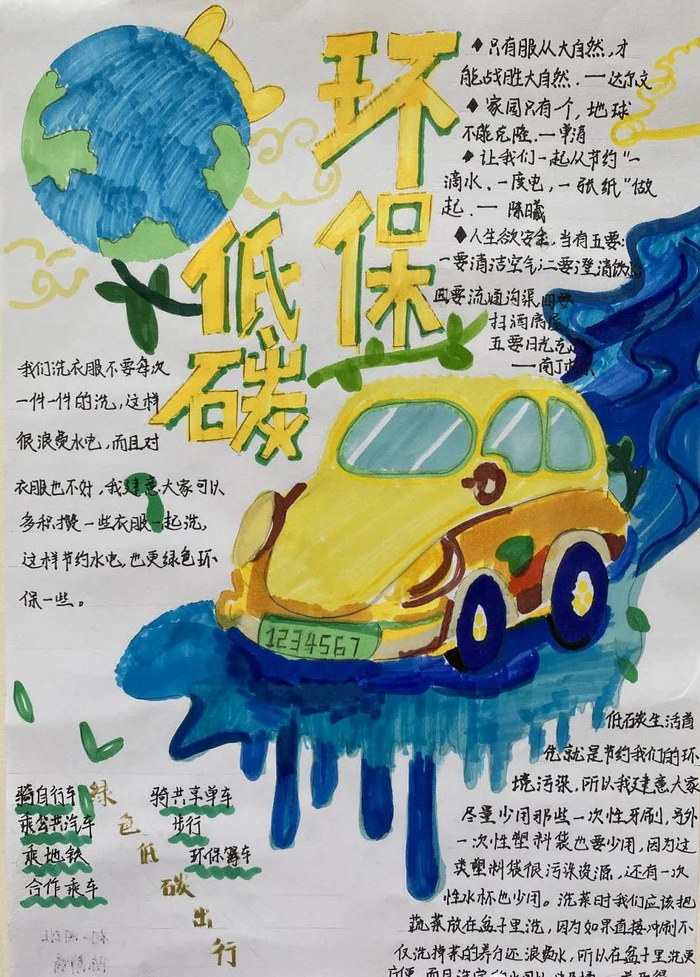 环保
低碳
♦只有服从大自然,才
能战胜大自然.一一达尔文
♦家园只有一个,地球
不能克隆.一单消
♦让我们一起从节约"一
滴水.一度电,一张纸"做
起.一一陈曦
♦人生欲安全,当有五要:
一要清洁空气;二要澄清饮
四要流通沟渠四要
扫洒房屋
五要日光充
一一南丁
我们洗衣服不要每次
一件一件的洗,这样
很浪费水电,而且对
衣服也不好,我建意大家可以
多积攒一些衣服一起洗,
这样节约水电,也更绿色环
保一些。
1234567
低碳生活首
先就是节约我们的环
境污染,所以我建意大家
尽量少用那些一次性牙刷,另外
一次性塑料袋也要少用,因为这
类塑料袋很污染资源,还有一次
性水杯也少用。洗菜时我们应该把
蔬菜放在盆子里洗,因为如果直接冲刷不
仅洗掉菜的养分还浪费水,所以在盆子里洗更
方便
绿色低碳出行
骑自行车
乘公共汽车
乘地铁
合作乘车
骑共享单车
步行
环保驾车